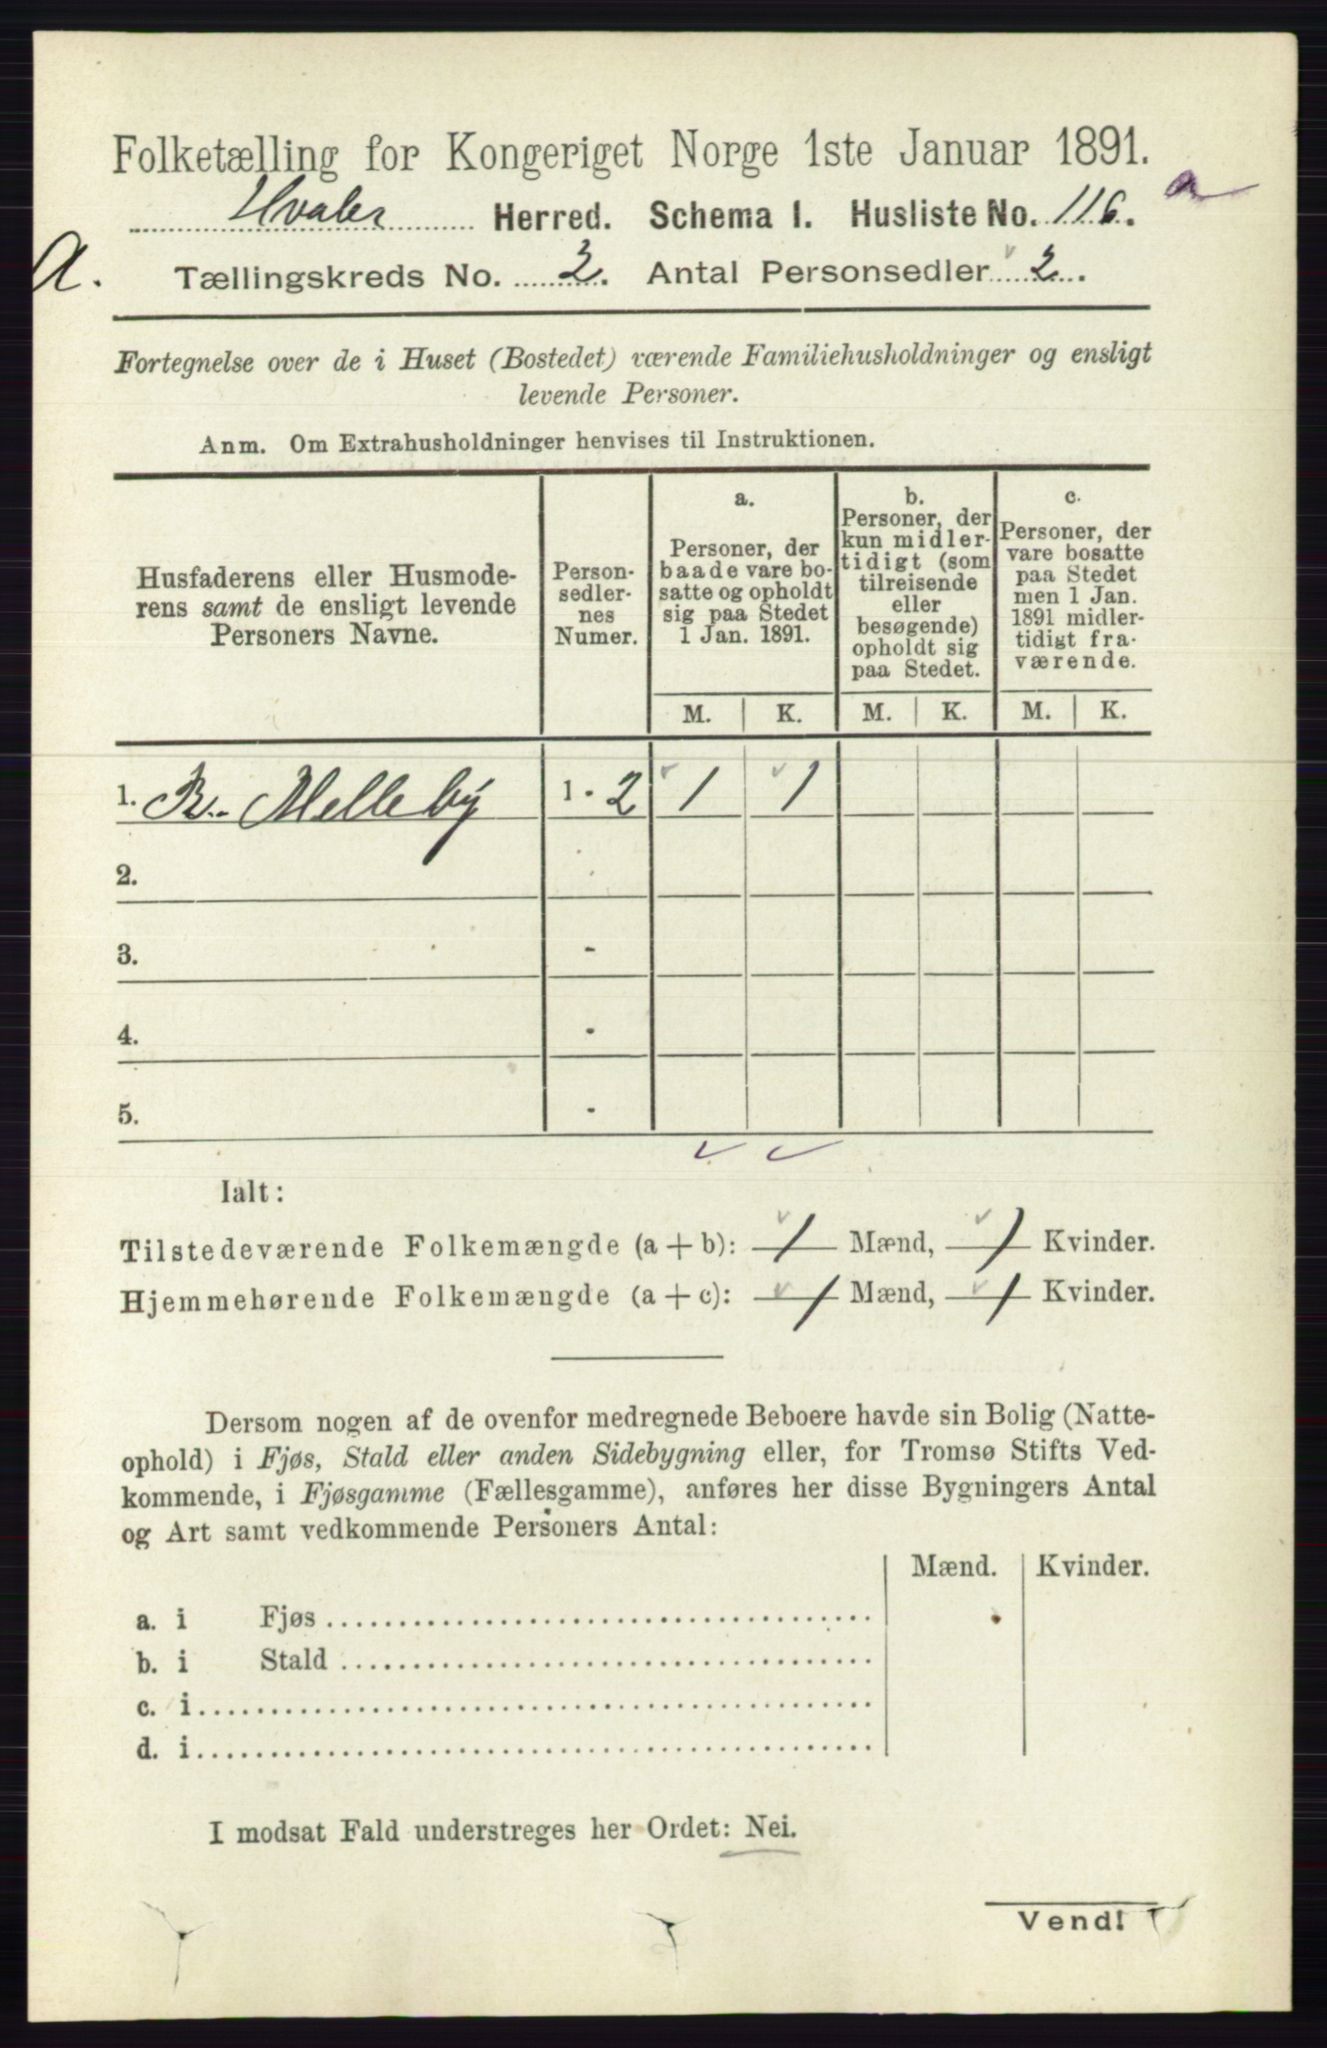 Folketælling for Kongeriget Norge 1ste Januar 1891.
Hvaler Herred. Schema I. Husliste No. 116. a
A. Tællingskreds No. 2. Antal Personsedler 2.
Fortegnelse over de i Huset (Bostedet) værende Familiehusholdninger og ensligt
levende Personer.
Anm. Om Extrahusholdninger henvises til Instruktionen.
Husfaderens eller Husmode-
rens samt de ensligt levende
Personers Navne.
Person-
sedler-
nes
Numer.
a.
Personer, der
baade vare bo-
satte og opholdt
sig paa Stedet
1 Jan. 1891.
b.
Personer, der
kun midler-
tidigt (som
tilreisende
eller
besøgende)
opholdt sig
paa Stedet.
c.
Personer, der
vare bosatte
paa Stedet
men 1 Jan.
1891 midler-
tidigt fra-
værende.
M. K. M. K. M. K.
1. B. Melleby 1 - 2 1 1
2.
3. -
4. -
5. -
Ialt:
Tilstedeværende Folkemængde (a + b): 1 Mænd, 1 Kvinder.
Hjemmehørende Folkemængde (a + c): 1 Mænd, 1 Kvinder.
Dersom nogen af de ovenfor medregnede Beboere havde sin Bolig (Natte-
ophold) i Fjøs, Stald eller anden Sidebygning eller, for Tromsø Stifts Ved-
kommende, i Fjøsgamme (Fællesgamme), anføres her disse Bygningers Antal
og Art samt vedkommende Personers Antal:
Mænd. Kvinder.
a. i Fjøs
b. i Stald
c. i
d. i
I modsat Fald understreges her Ordet: Nei.
Vend!